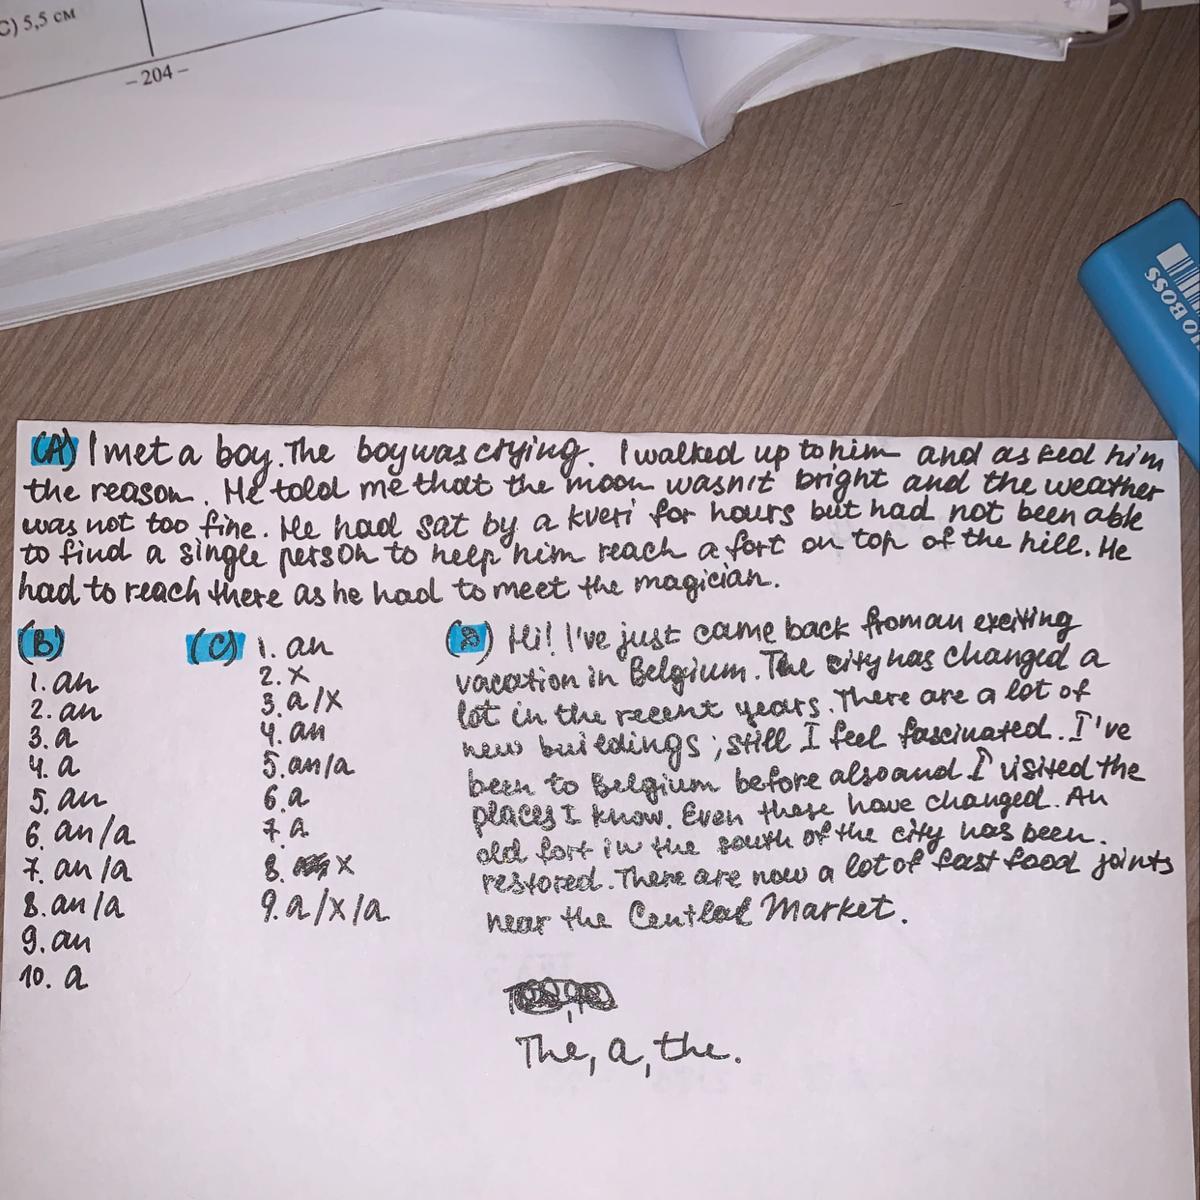 C) 5,5 см
– 204 –
BOSS
(A) I met a boy. The boy was crying. I walked up to him and asked him
the reason. He told me that the moon wasn't bright and the weather
was not too fine. He had sat by a kveri for hours but had not been able
to find a single person to help him reach a fort on top of the hill. He
had to reach there as he had to meet the magician.
(B)
1. an
2. an
3. a
4. a
5. an
6. an/a
7. an/a
8. an/a
9. an
10. a
(C) 1. an
2. x
3. a/x
4. an
5. an/a
6. a
7. a
8. x
9. a/x/a
(D) Hi! I've just came back from an exciting
vacation in Belgium. The city has changed a
lot in the recent years. There are a lot of
new buildings; still I feel fascinated. I've
been to Belgium before also and I visited the
places I know. Even these have changed. An
old fort in the south of the city has been.
restored. There are now a lot of fast food joints
near the Central Market.
The, a, the.